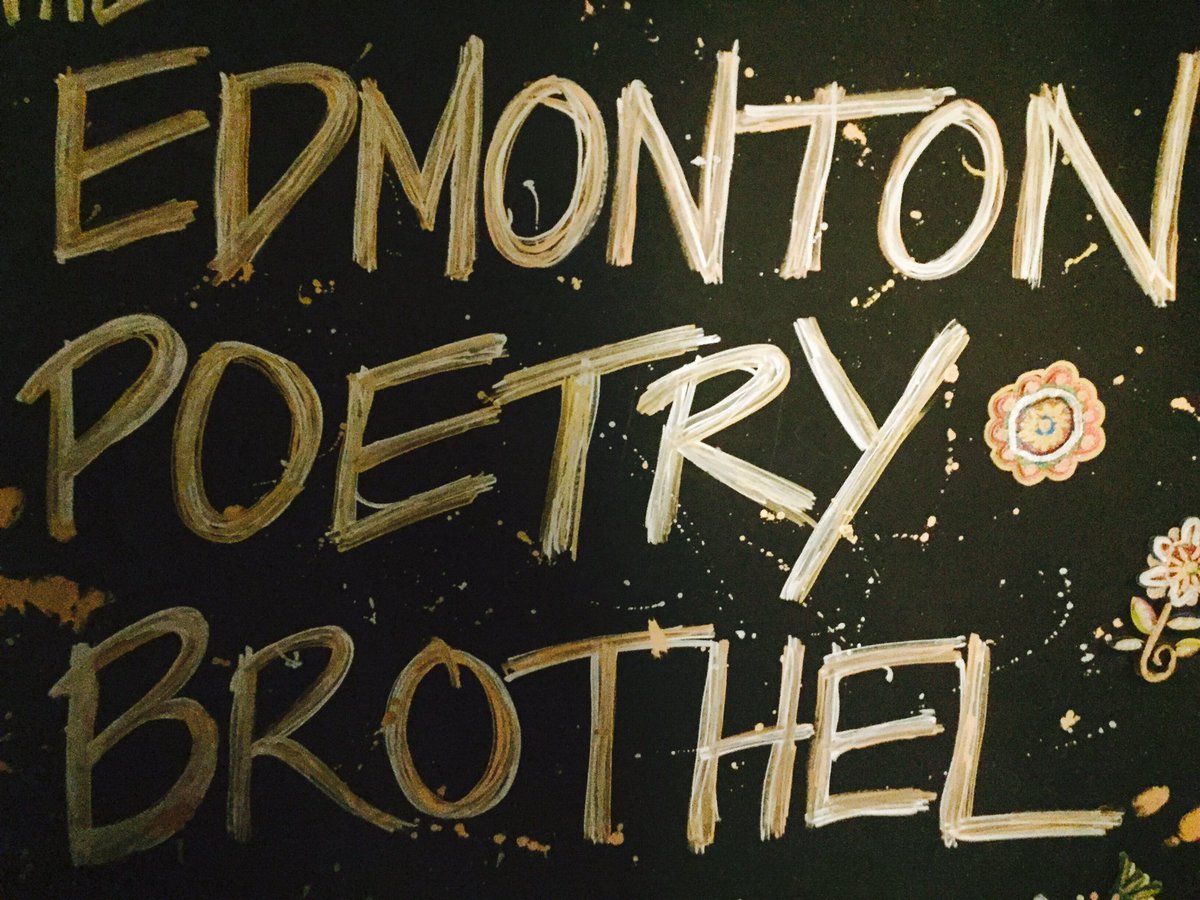 EDMONTON
POETRY
BROTHEL